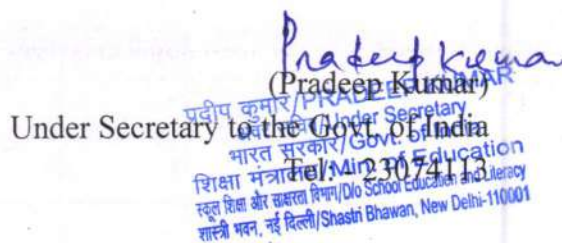 Pradeep Kumar
(Pradeep Kumar)
Under Secretary to the Govt. of India
Tel: - 23074113
प्रदीप कुमार/PRADEEP KUMAR
Under Secretary
भारत सरकार/Govt. of India
शिक्षा मंत्रालय/Min. of Education
स्कूल शिक्षा और साक्षरता विभाग/D/o School Education and Literacy
शास्त्री भवन, नई दिल्ली/Shastri Bhawan, New Delhi-110001